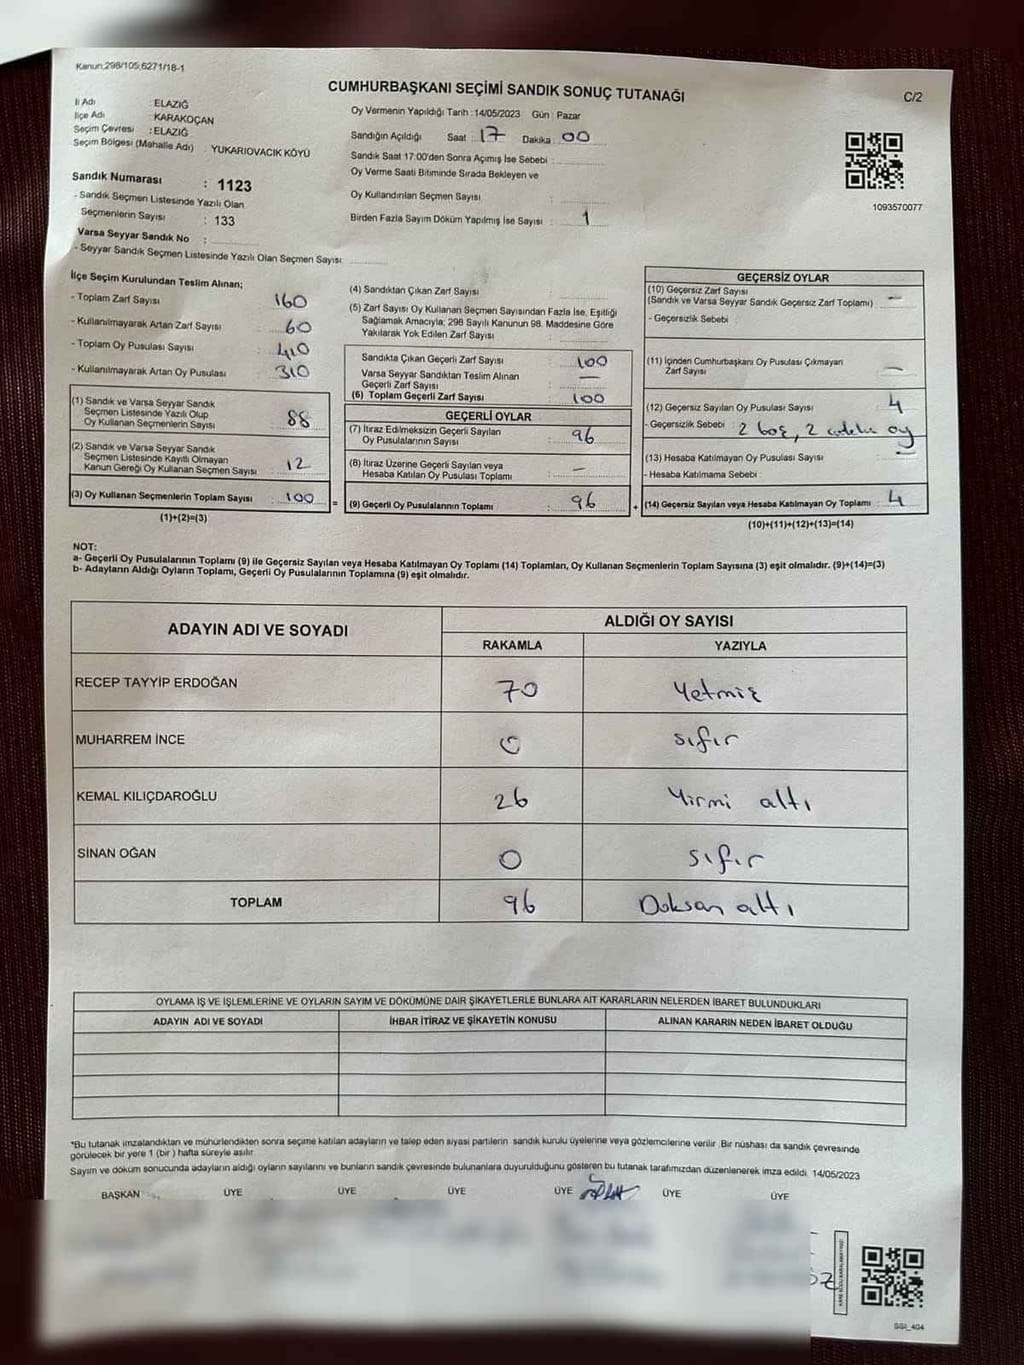 Kanun:298/105;6271/18-1
CUMHURBAŞKANI SEÇİMİ SANDIK SONUÇ TUTANAĞI
C/2
İl Adı : ELAZIĞ
İlçe Adı : KARAKOÇAN
Seçim Çevresi : ELAZIĞ
Seçim Bölgesi (Mahalle Adı) : YUKARIOVACIK KÖYÜ
Sandık Numarası : 1123
- Sandık Seçmen Listesinde Yazılı Olan
Seçmenlerin Sayısı : 133
Varsa Seyyar Sandık No :
- Seyyar Sandık Seçmen Listesinde Yazılı Olan Seçmen Sayısı:
Oy Vermenin Yapıldığı Tarih : 14/05/2023 Gün : Pazar
Sandığın Açıldığı Saat : 17 Dakika : 00
Sandık Saat 17:00'den Sonra Açımış İse Sebebi :
Oy Verme Saati Bitiminde Sırada Bekleyen ve
Oy Kullandırılan Seçmen Sayısı :
Birden Fazla Sayım Döküm Yapılmış İse Sayısı : 1
1093570077
İlçe Seçim Kurulundan Teslim Alınan;
- Toplam Zarf Sayısı : 160
- Kullanılmayarak Artan Zarf Sayısı : 60
- Toplam Oy Pusulası Sayısı : 410
- Kullanılmayarak Artan Oy Pusulası : 310
(1) Sandık ve Varsa Seyyar Sandık
Seçmen Listesinde Yazılı Olup
Oy Kullanan Seçmenlerin Sayısı : 88
(2) Sandık ve Varsa Seyyar Sandık
Seçmen Listesinde Kayıtlı Olmayan
Kanun Gereği Oy Kullanan Seçmen Sayısı : 12
(3) Oy Kullanan Seçmenlerin Toplam Sayısı : 100
(1)+(2)=(3)
=
(4) Sandıktan Çıkan Zarf Sayısı :
(5) Zarf Sayısı Oy Kullanan Seçmen Sayısından Fazla İse, Eşitliği
Sağlamak Amacıyla; 298 Sayılı Kanunun 98. Maddesine Göre
Yakılarak Yok Edilen Zarf Sayısı :
Sandıkta Çıkan Geçerli Zarf Sayısı : 100
Varsa Seyyar Sandıktan Teslim Alınan
Geçerli Zarf Sayısı : —
(6) Toplam Geçerli Zarf Sayısı : 100
GEÇERLİ OYLAR
(7) İtiraz Edilmeksizin Geçerli Sayılan
Oy Pusulalarının Sayısı : 96
(8) İtiraz Üzerine Geçerli Sayılan veya
Hesaba Katılan Oy Pusulası Toplamı : —
(9) Geçerli Oy Pusulalarının Toplamı : 96
+
GEÇERSİZ OYLAR
(10) Geçersiz Zarf Sayısı
(Sandık ve Varsa Seyyar Sandık Geçersiz Zarf Toplamı) : —
- Geçersizlik Sebebi :
(11) İçinden Cumhurbaşkanı Oy Pusulası Çıkmayan
Zarf Sayısı : —
(12) Geçersiz Sayılan Oy Pusulası Sayısı : 4
- Geçersizlik Sebebi : 2 boş, 2 oy
(13) Hesaba Katılmayan Oy Pusulası Sayısı : —
- Hesaba Katılmama Sebebi :
(14) Geçersiz Sayılan veya Hesaba Katılmayan Oy Toplamı : 4
(10)+(11)+(12)+(13)=(14)
NOT:
a- Geçerli Oy Pusulalarının Toplamı (9) ile Geçersiz Sayılan veya Hesaba Katılmayan Oy Toplamı (14) Toplamları, Oy Kullanan Seçmenlerin Toplam Sayısına (3) eşit olmalıdır. (9)+(14)=(3)
b- Adayların Aldığı Oyların Toplamı, Geçerli Oy Pusulalarının Toplamına (9) eşit olmalıdır.
ADAYIN ADI VE SOYADI
ALDIĞI OY SAYISI
RAKAMLA YAZIYLA
RECEP TAYYİP ERDOĞAN 70 Yetmiş
MUHARREM İNCE 0 sıfır
KEMAL KILIÇDAROĞLU 26 Yirmi altı
SİNAN OĞAN 0 sıfır
TOPLAM 96 Doksan altı
OYLAMA İŞ VE İŞLEMLERİNE VE OYLARIN SAYIM VE DÖKÜMÜNE DAİR ŞİKAYETLERLE BUNLARA AİT KARARLARIN NELERDEN İBARET BULUNDUKLARI
ADAYIN ADI VE SOYADI İHBAR İTİRAZ VE ŞİKAYETİN KONUSU ALINAN KARARIN NEDEN İBARET OLDUĞU
*Bu tutanak imzalandıktan ve mühürlendikten sonra seçime katılan adayların ve talep eden siyasi partilerin sandık kurulu üyelerine veya gözlemcilerine verilir. Bir nüshası da sandık çevresinde
görülecek bir yere 1 (bir) hafta süreyle asılır.
Sayım ve döküm sonucunda adayların aldığı oyların sayılarını ve bunların sandık çevresinde bulunanlara duyurulduğunu gösteren bu tutanak tarafımızdan düzenlenerek imza edildi. 14/05/2023
BAŞKAN ÜYE ÜYE ÜYE ÜYE ÜYE ÜYE
SSI_404